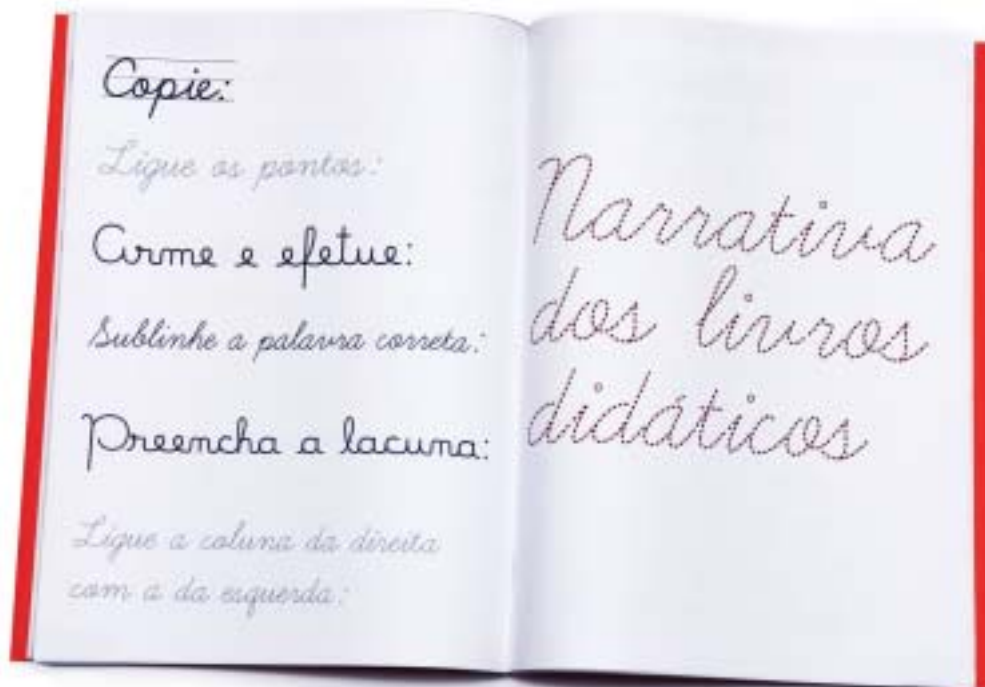 Copie:
Ligue os pontos:
Arme e efetue:
Sublinhe a palavra correta:
Preencha a lacuna:
Ligue a coluna da direita
com a da esquerda:
Narrativa
dos livros
didáticos